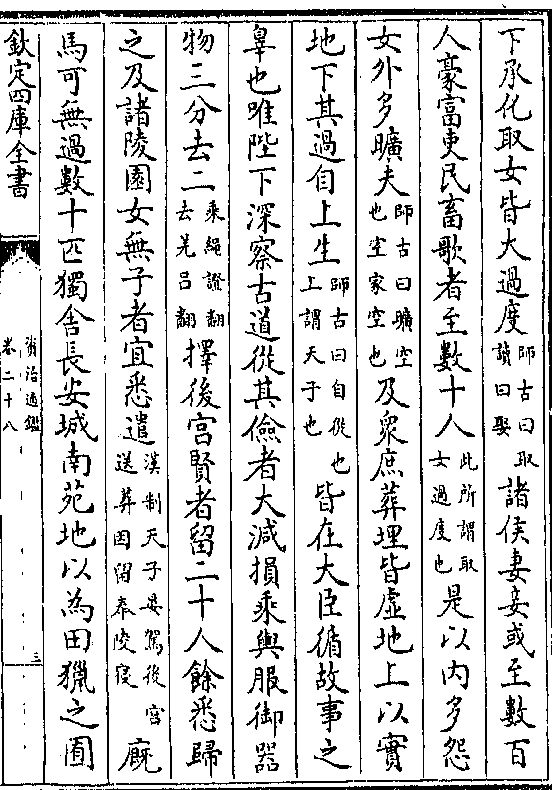 下承化取女皆大過度師古曰取讀曰娶諸侯妻妾或至數百
人豪富吏民畜歌者至數十人此所謂取女過度也是以內多怨
女外多曠夫師古曰曠空也室家空也及衆庶葬埋皆虛地上以實
地下其過自上生師古曰自從也上謂天子也皆在大臣循故事之
辠也唯陛下深察古道從其儉者大減損乘輿服御器
物三分去二乘繩證翻去羌呂翻擇後宮賢者留二十人餘悉歸
之及諸陵園女無子者宜悉遣漢制天子晏駕後宮送葬因留奉陵寢廐
馬可無過數十匹獨舍長安城南苑地以為田獵之囿
欽定四庫全書
資治通鑑
卷二十八
三